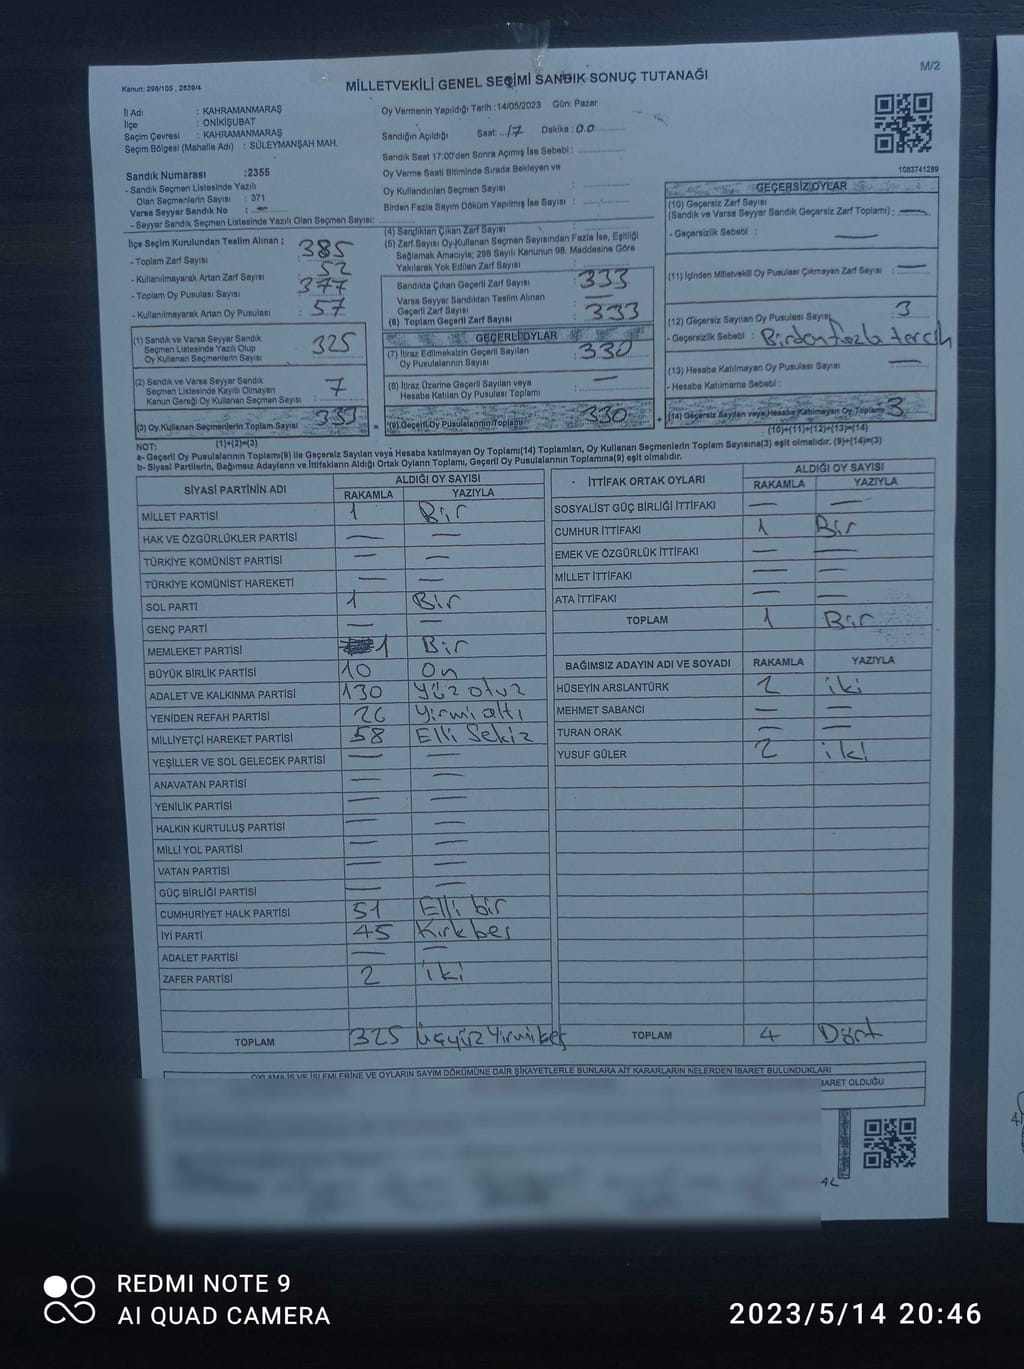 M/2
Kanun: 298/105 , 2839/4
MİLLETVEKİLİ GENEL SEÇİMİ SANDIK SONUÇ TUTANAĞI
İl Adı : KAHRAMANMARAŞ
İlçe : ONİKİŞUBAT
Seçim Çevresi : KAHRAMANMARAŞ
Seçim Bölgesi (Mahalle Adı) : SÜLEYMANŞAH MAH.
Sandık Numarası :2355
- Sandık Seçmen Listesinde Yazılı
Olan Seçmenlerin Sayısı : 371
Varsa Seyyar Sandık No :
- Seyyar Sandık Seçmen Listesinde Yazılı Olan Seçmen Sayısı:
Oy Vermenin Yapıldığı Tarih :14/05/2023 Gün: Pazar
Sandığın Açıldığı Saat: 17 Dakika : 00
Sandık Saat 17:00'den Sonra Açımış İse Sebebi :
Oy Verme Saati Bitiminde Sırada Bekleyen ve
Oy Kullandırılan Seçmen Sayısı :
Birden Fazla Sayım Döküm Yapılmış İse Sayısı :
1083741289
İlçe Seçim Kurulundan Teslim Alınan :
- Toplam Zarf Sayısı : 385
- Kullanılmayarak Artan Zarf Sayısı : 52
- Toplam Oy Pusulası Sayısı : 377
- Kullanılmayarak Artan Oy Pusulası : 57
(1) Sandık ve Varsa Seyyar Sandık
Seçmen Listesinde Yazılı Olup
Oy Kullanan Seçmenlerin Sayısı : 325
(2) Sandık ve Varsa Seyyar Sandık
Seçmen Listesinde Kayıtlı Olmayan
Kanun Gereği Oy Kullanan Seçmen Sayısı : 7
(3) Oy Kullanan Seçmenlerin Toplam Sayısı : 333
(1)+(2)=(3)
(4) Sandıktan Çıkan Zarf Sayısı :
(5) Zarf Sayısı Oy Kullanan Seçmen Sayısından Fazla İse, Eşitliği
Sağlamak Amacıyla; 298 Sayılı Kanunun 98. Maddesine Göre
Yakılarak Yok Edilen Zarf Sayısı :
Sandıkta Çıkan Geçerli Zarf Sayısı : 333
Varsa Seyyar Sandıktan Teslim Alınan
Geçerli Zarf Sayısı : —
(6) Toplam Geçerli Zarf Sayısı : 333
GEÇERLİ OYLAR
(7) İtiraz Edilmeksizin Geçerli Sayılan
Oy Pusulalarının Sayısı : 330
(8) İtiraz Üzerine Geçerli Sayılan veya
Hesaba Katılan Oy Pusulası Toplamı : —
(9) Geçerli Oy Pusulalarının Toplamı : 330
GEÇERSİZ OYLAR
(10) Geçersiz Zarf Sayısı
(Sandık ve Varsa Seyyar Sandık Geçersiz Zarf Toplamı) : —
- Geçersizlik Sebebi : —
(11) İçinden Milletvekili Oy Pusulası Çıkmayan Zarf Sayısı : —
(12) Geçersiz Sayılan Oy Pusulası Sayısı : 3
- Geçersizlik Sebebi : Birden fazla tercih
(13) Hesaba Katılmayan Oy Pusulası Sayısı : —
- Hesaba Katılmama Sebebi :
(14) Geçersiz Sayılan veya Hesaba Katılmayan Oy Toplamı : 3
(10)+(11)+(12)+(13)=(14)
NOT:
a- Geçerli Oy Pusulalarının Toplamı(9) ile Geçersiz Sayılan veya Hesaba katılmayan Oy Toplamı(14) Toplamları, Oy Kullanan Seçmenlerin Toplam Sayısına(3) eşit olmalıdır. (9)+(14)=(3)
b- Siyasi Partilerin, Bağımsız Adayların ve İttifakların Aldığı Ortak Oyların Toplamı, Geçerli Oy Pusulalarının Toplamına(9) eşit olmalıdır.
SİYASİ PARTİNİN ADI ALDIĞI OY SAYISI
RAKAMLA YAZIYLA
MİLLET PARTİSİ 1 Bir
HAK VE ÖZGÜRLÜKLER PARTİSİ — —
TÜRKİYE KOMÜNİST PARTİSİ — —
TÜRKİYE KOMÜNİST HAREKETİ — —
SOL PARTİ 1 Bir
GENÇ PARTİ — —
MEMLEKET PARTİSİ 1 Bir
BÜYÜK BİRLİK PARTİSİ 10 On
ADALET VE KALKINMA PARTİSİ 130 Yüz otuz
YENİDEN REFAH PARTİSİ 26 Yirmi altı
MİLLİYETÇİ HAREKET PARTİSİ 58 Elli Sekiz
YEŞİLLER VE SOL GELECEK PARTİSİ — —
ANAVATAN PARTİSİ — —
YENİLİK PARTİSİ — —
HALKIN KURTULUŞ PARTİSİ — —
MİLLİ YOL PARTİSİ — —
VATAN PARTİSİ — —
GÜÇ BİRLİĞİ PARTİSİ — —
CUMHURİYET HALK PARTİSİ 51 Elli bir
İYİ PARTİ 45 Kırk beş
ADALET PARTİSİ — —
ZAFER PARTİSİ 2 iki
TOPLAM 325 Üçyüz Yirmi beş
İTTİFAK ORTAK OYLARI ALDIĞI OY SAYISI
RAKAMLA YAZIYLA
SOSYALİST GÜÇ BİRLİĞİ İTTİFAKI — —
CUMHUR İTTİFAKI 1 Bir
EMEK VE ÖZGÜRLÜK İTTİFAKI — —
MİLLET İTTİFAKI — —
ATA İTTİFAKI — —
TOPLAM 1 Bir
BAĞIMSIZ ADAYIN ADI VE SOYADI RAKAMLA YAZIYLA
HÜSEYİN ARSLANTÜRK 2 iki
MEHMET SABANCI — —
TURAN ORAK — —
YUSUF GÜLER 2 iki
TOPLAM 4 Dört
OYLAMA İŞ VE İŞLEMLERİNE VE OYLARIN SAYIM DÖKÜMÜNE DAİR ŞİKAYETLERLE BUNLARA AİT KARARLARIN NELERDEN İBARET BULUNDUKLARI
BARET OLDUĞU
REDMI NOTE 9
AI QUAD CAMERA
2023/5/14 20:46